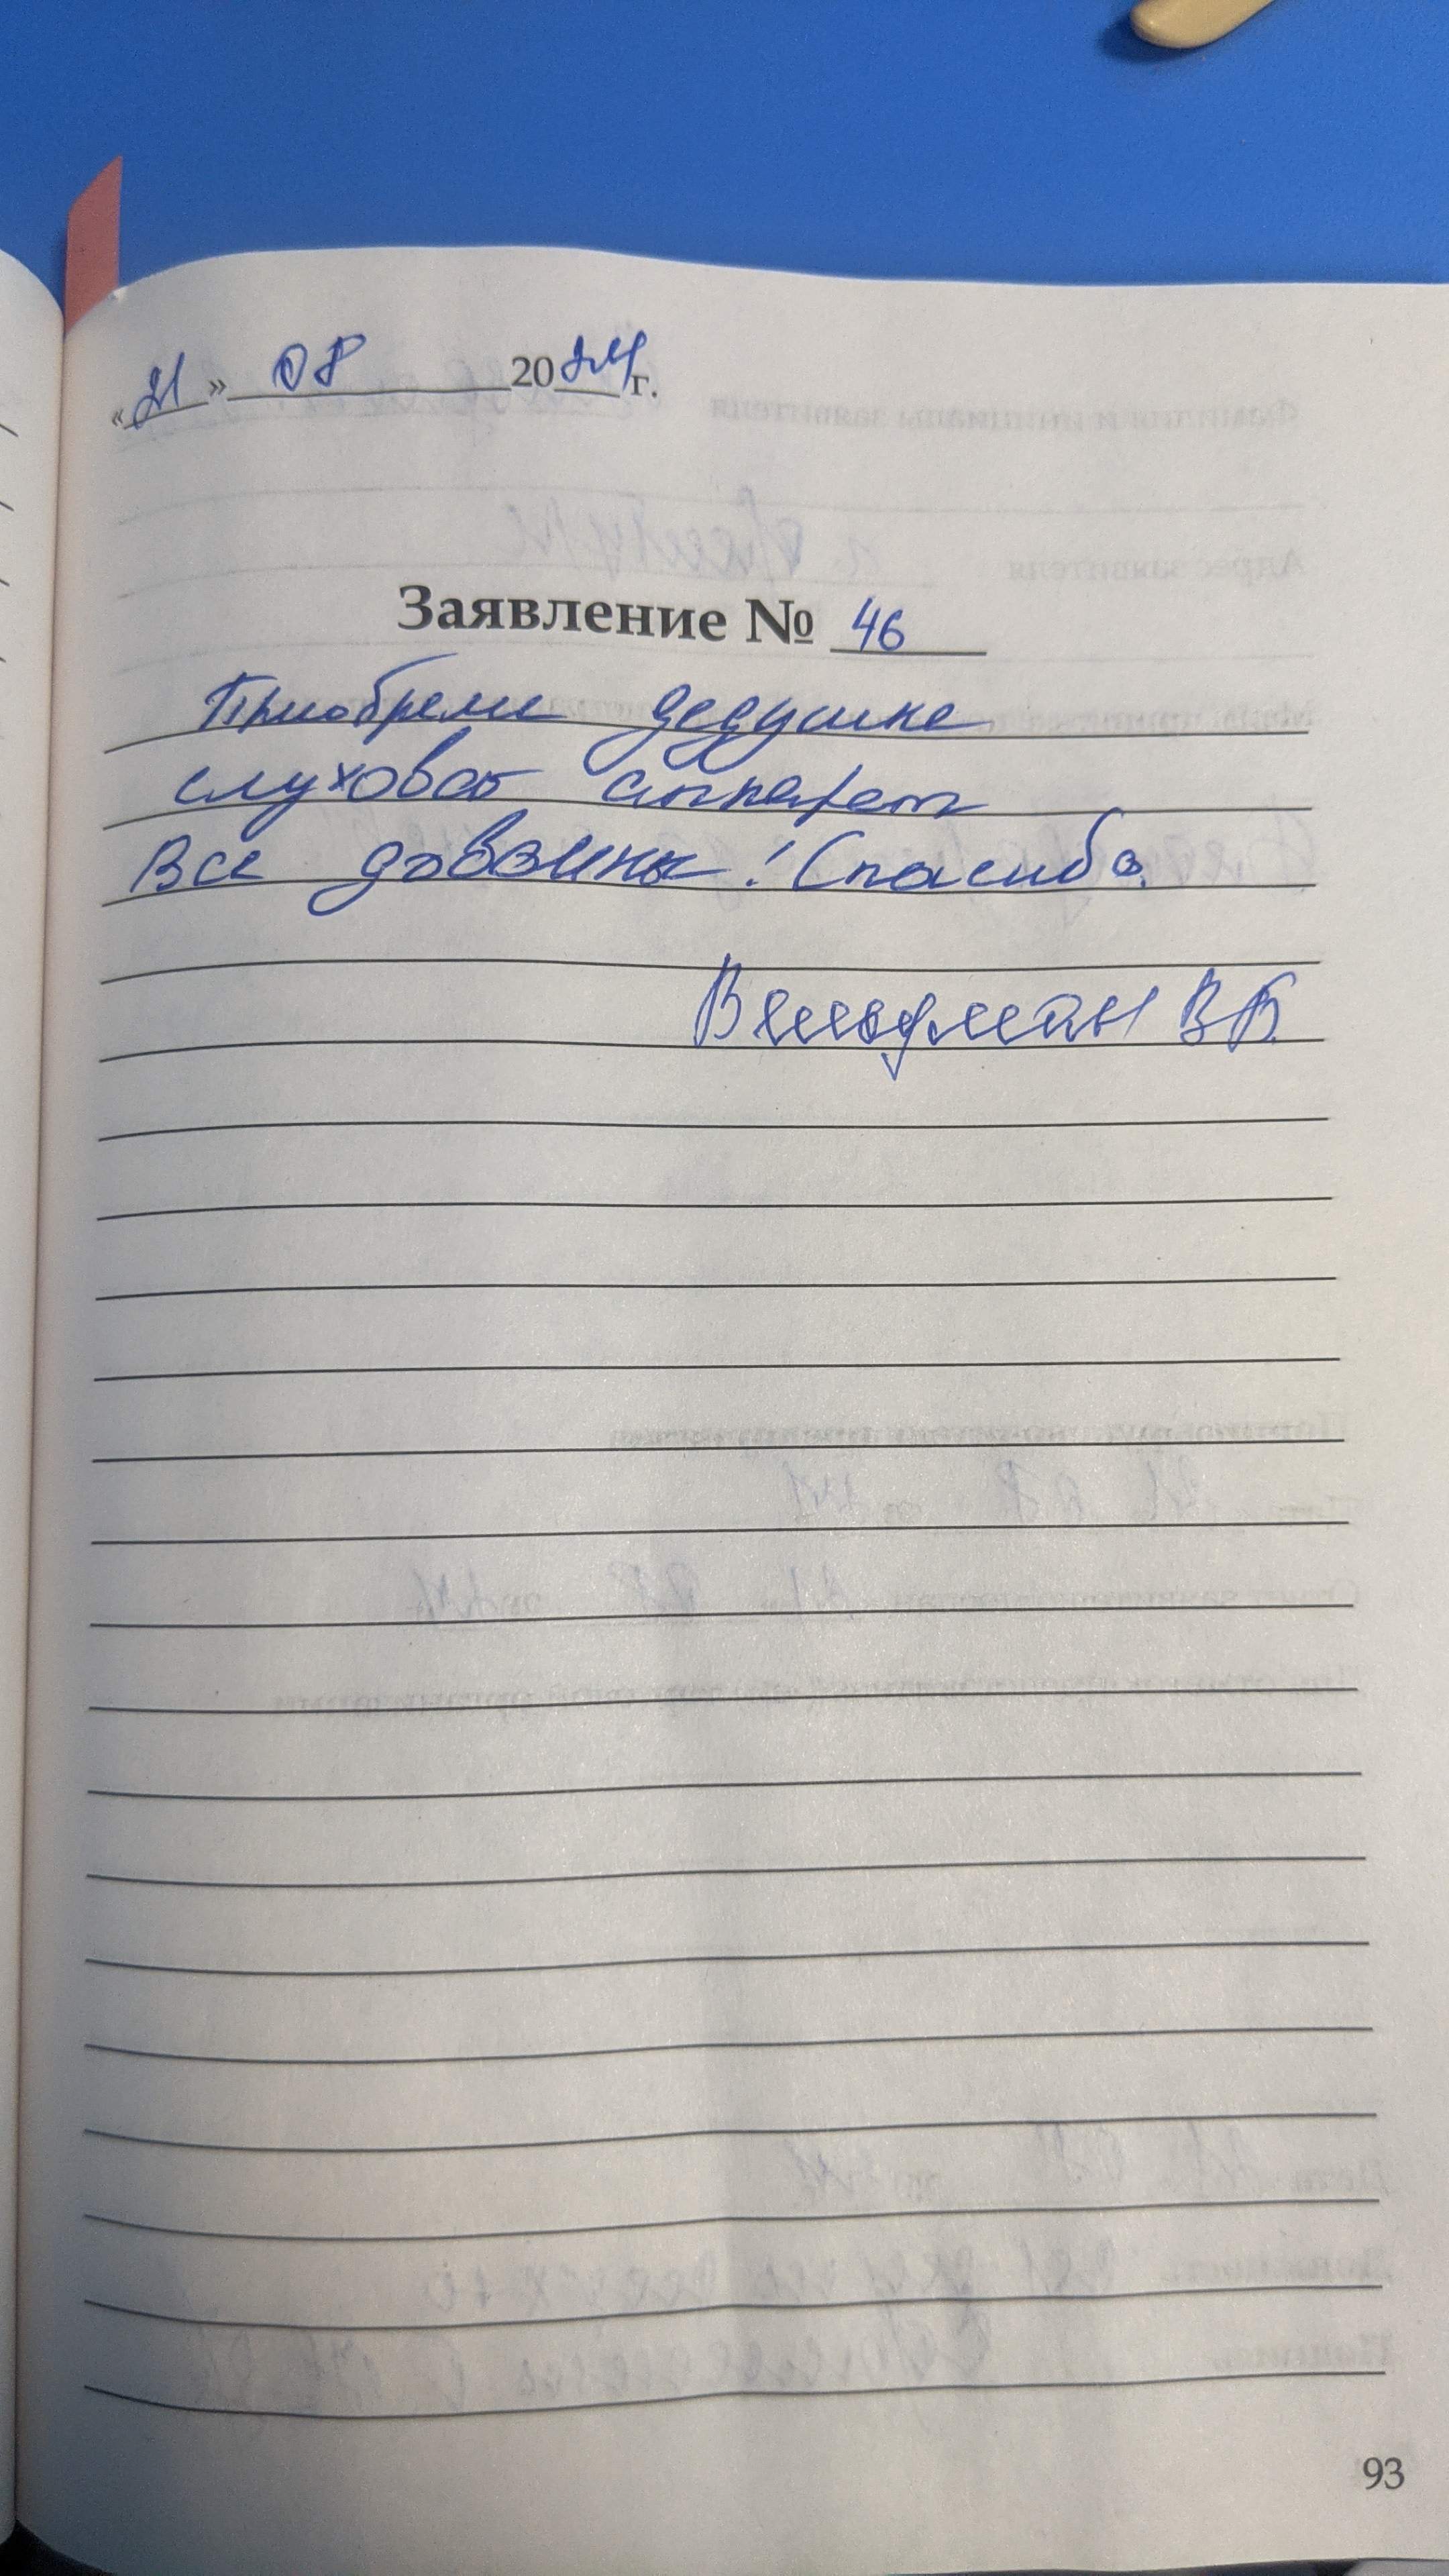 «21» 08 2024 г.
Заявление № 46
Приобрели дедушке
слуховой аппарат
Все довольны! Спасибо.
В.Б.
93